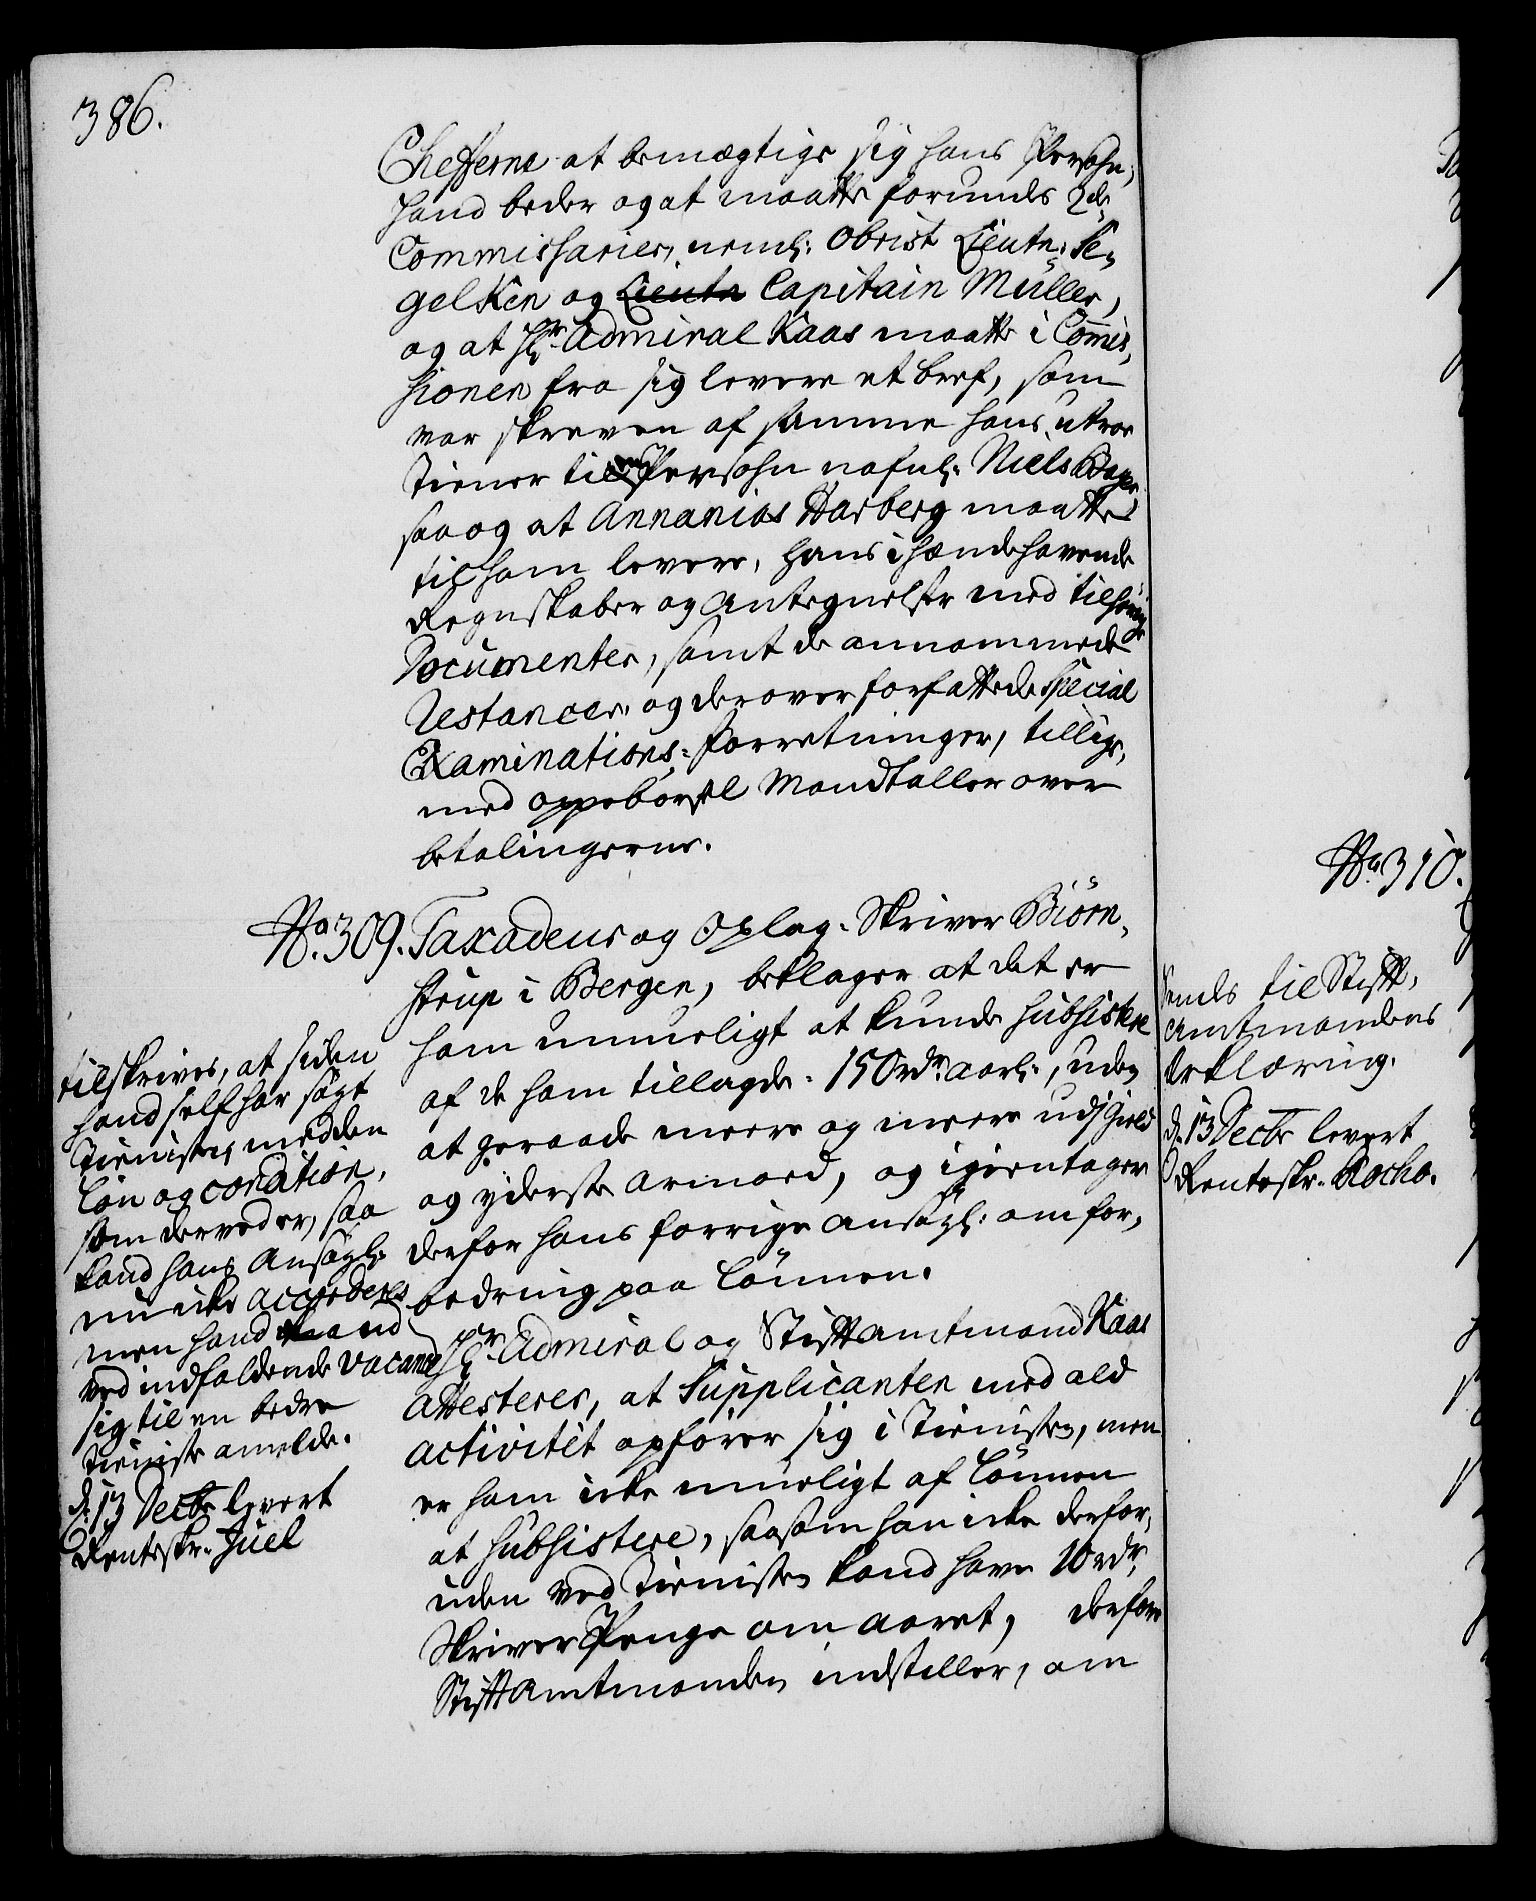 386.
Chefferne at bemægtige sig hans Persohn,
hand beder og at maatte forundes 2de
Commissarier, neml: Obrist Lieutn: Se-
gelken og Lieutn Capitain Müller,
og at Hr Admiral Kaas maatte i Commis-
sionen fra sig levere et bref, som
var skreven af samme hans utroe
Tiener til en Persohn nafnl: Niels
saa og at Annanias Harberg maatte
til ham levere, hans i hændehavende
Regnskaber og Antegnelser med tilhørige
Documenter, samt de annammede
Restancer, og derover forfattede Special
Examinations-Forretninger, tillige-
med oppebørsel Mandtaller over
betalingerne.
No. 309. Taxadeur og Oplag-Skriver Biörn-
strup i Bergen, beklager at det er
ham umueligt at kunde subsistere
af de ham tillagde 150 rdr aarl:, uden
at geraade meere og meere udj Gield
og yderste armoed, og igientager
derfor hans forrige ansögl: om for-
bedring paa Lönnen.
Hr Admiral og Stiftamtmand Kaas
attesterer, at Supplicanten med ald
activitét opförer sig i Tienisten, men
er ham icke mueligt af Lönnen
at subsistere, saasom han icke derfor-
uden ved Tienisten kand have 10 rdr
Skriver Penge om aaret, derfore
Stiftamtmanden indstiller, om
tilskrives, at siden
hand self har sögt
Tienisten med den
Lön og condition,
som derved er, saa
kand hans Ansögl:
nu icke accorderes
men hand kand
ved indfaldende vacance
sig til en bedre
tieniste anmelde.
d. 13 Decbr levert
Renteskr. Juel
No. 310.
Sendes til Stift-
amtmandens
Erklæring.
d. 13 Decbr levert
Renteskr. Rocho.